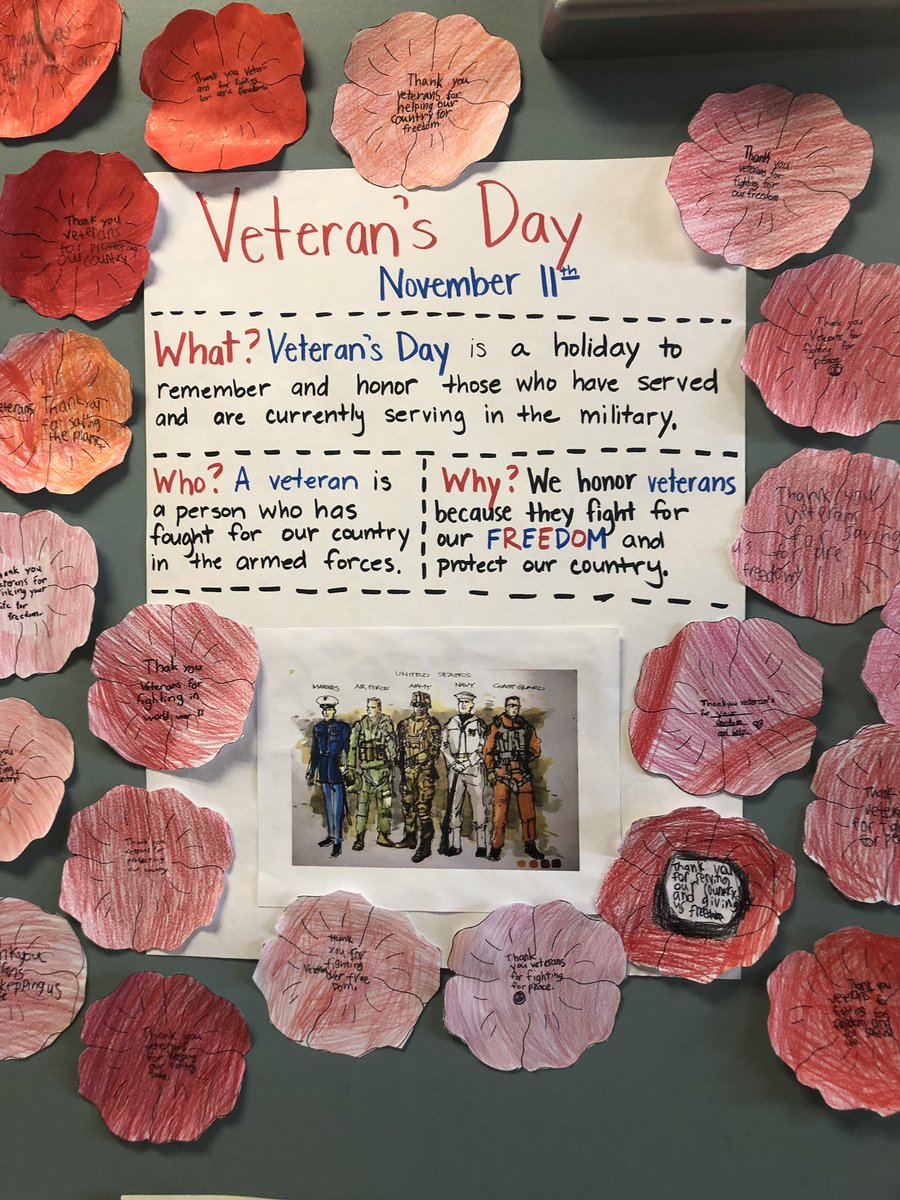 Veteran's Day
November 11th
What? Veteran's Day is a holiday to
remember and honor those who have served
and are currently serving in the military.
Who? A veteran is
a person who has
fought for our country
in the armed forces.
Why? We honor veterans
because they fight for
our FREEDOM and
protect our country.
UNITED STATES
MARINES AIR FORCE ARMY NAVY COAST GUARD
Thank you Veter
ans for fighting
for are freedom
Thank you
veterans for
helping our
country for
freedom
Thank you
veterans for
fighting for
our freedom
Thank you
veterans
for protecting
our country
Thank you
for fighting for
peace
Thank you
for saving
the planet
Veterans
Thank you
veterans
for saving
us for are
freedom
Thank you
veterans for
risking your
life for
freedom
Thank you
Veterans for
fighting in
world war II
Thank you veteran's
for your
freedom
and help
Thank you
veterans for
protecting
our country
Thank you
for serving
our country
and giving
us freedom
Thank
you for
fighting
Veterans over free
dom.
Thank
you veterans
for fighting
for peace.
Thank you
veterans
for keeping
our
Thank you
veterans for
fighting for
freedom and
Thank
vetera
for fight
keepping us